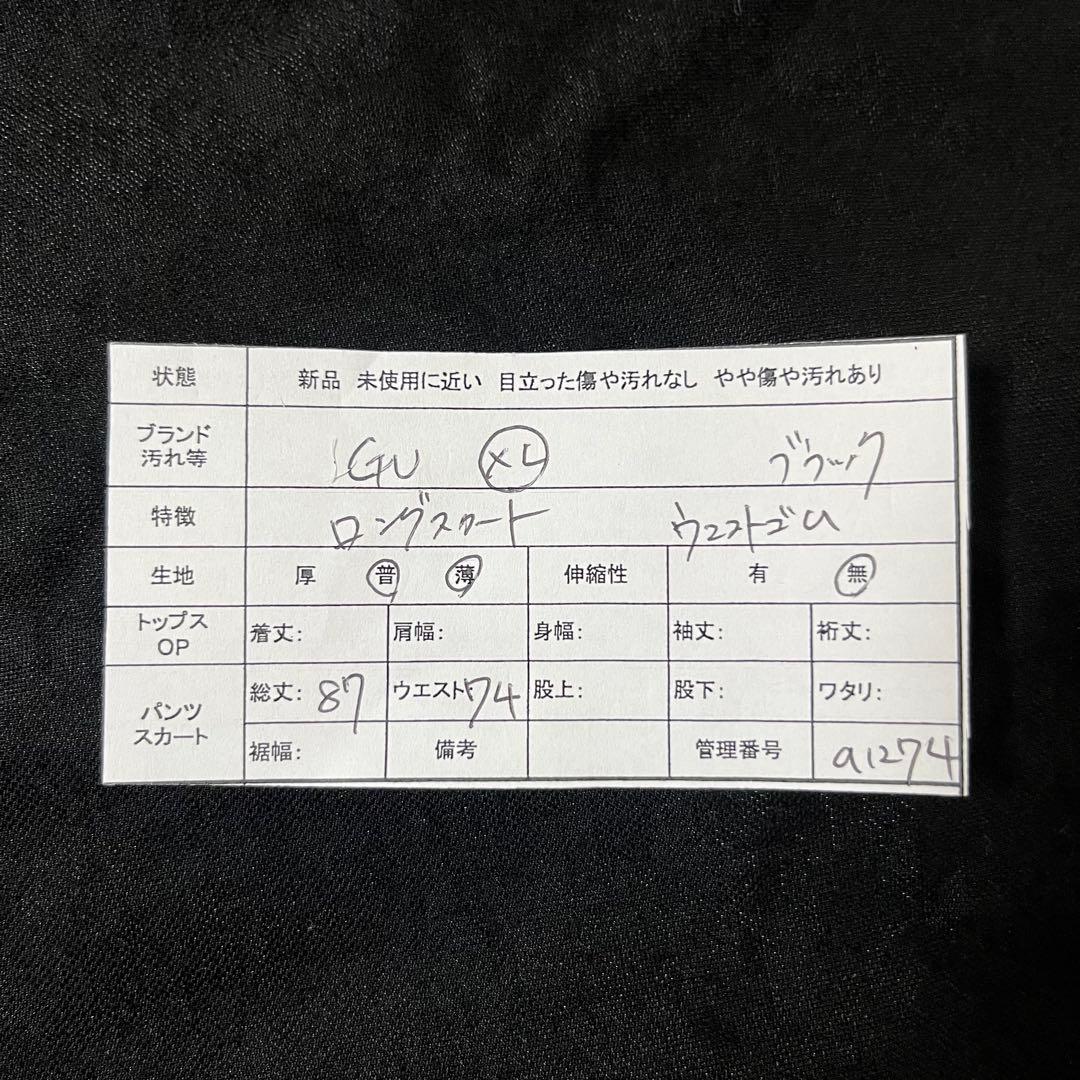 状態 新品 未使用に近い 目立った傷や汚れなし やや傷や汚れあり
ブランド
汚れ等 GU XL ブラック
特徴 ロングスカート ウエストゴム
生地 厚 普 薄 伸縮性 有 無
トップス
OP 着丈: 肩幅: 身幅: 袖丈: 裄丈:
パンツ
スカート
総丈: 87 ウエスト: 74 股上: 股下: ワタリ:
裾幅: 備考 管理番号 a1274